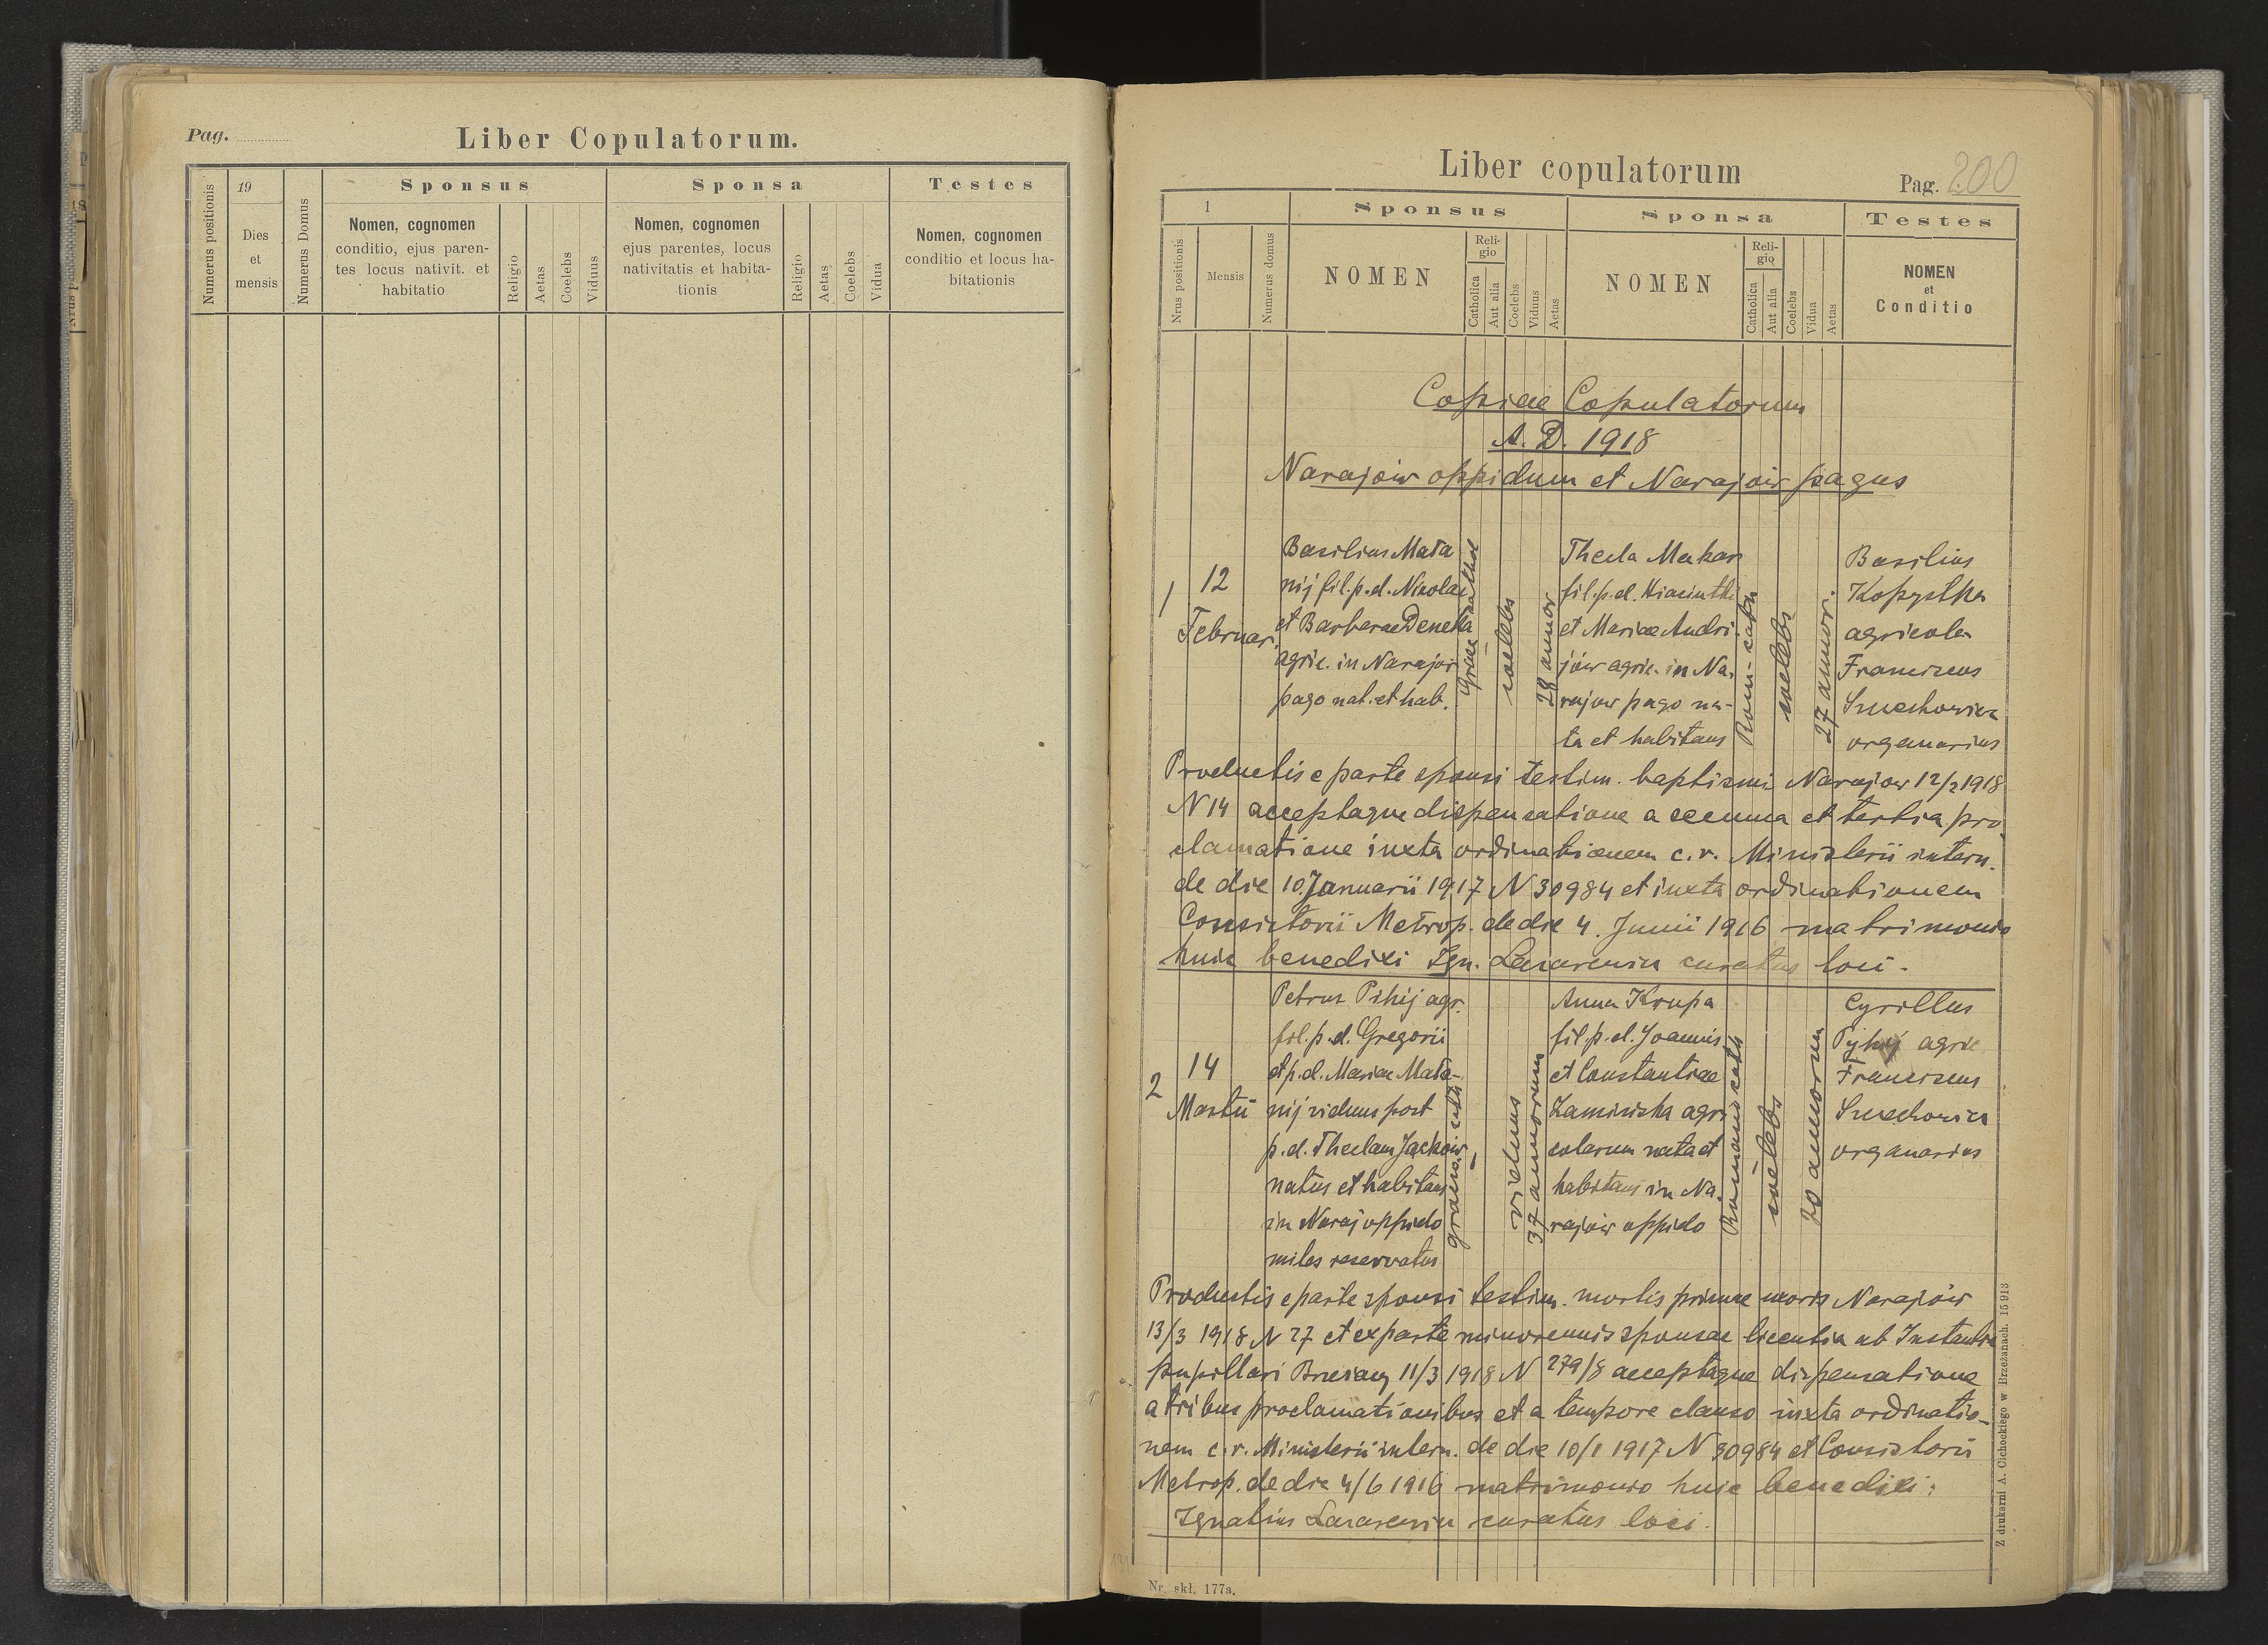 Pag.
Liber Copulatorum.
Numerus positionis
19
Dies
et
mensis
Numerus Domus
Sponsus
Nomen, cognomen
conditio, ejus paren-
tes locus nativit. et
habitatio
Religio
Aetas
Coelebs
Viduus
Sponsa
Nomen, cognomen
ejus parentes, locus
nativitatis et habita-
tionis
Religio
Aetas
Coelebs
Vidua
Testes
Nomen, cognomen
conditio et locus ha-
bitationis
Liber copulatorum
Pag. 200
1
Nrus positionis
Mensis
Numerus domus
Sponsus
NOMEN
Reli-
gio
Catholica
Aut alia
Coelebs
Viduus
Aetas
Sponsa
NOMEN
Reli-
gio
Catholica
Aut alia
Coelebs
Vidua
Aetas
Testes
NOMEN
et
Conditio
Copiae Copulatorum
A. D. 1918
Narajów oppidum et Narajów pagus
1
12
Februar.
Basilius Mata
nij fil. p. d. Nicolai
et Barbarae Deneka
agric. in Narajow
pago nat. et hab.
Graec cathol
coelebs
28 annor
Thecla Makar
fil. p. d. Hiacinthi
et Mariae Andri-
jów agric. in Na-
rajow pago na-
ta et habitans
Rom-cath
coelebs
27 annor.
Basilius
Kopystka
agricola
Franciscus
organarius
Productis e parte sponsi testim. baptismi Narajow 12/2 1918
N 14 acceptaque dispensatione a secunda et tertia pro
clamatione iuxta ordinationem c. r. Ministerii intern.
de die 10 Januarii 1917 N 30984 et iuxta ordinationem
Consistorii Metrop. de die 4. Junii 1916 matrimonio
huic benedixi Ign. curatus loci.
2
14
Martii
Petrus Pihij agr.
fil. p. d. Gregorii
et p. d. Mariae Mata-
nij viduus post
p. d. Theclam Jackow,
natus et habitans
in Naraj oppido
miles reservatus
graeco. cath
viduus
37 annorum
Anna Krupa
fil. p. d. Joannis
et Constantiae
Zaminska agri
colarum nata et
habitans in Na-
rajów oppido
Romano cath
coelebs
20 annorum
Cyrillus
Pyhij agric
Franciscus
organarius
Productis e parte sponsi testim. mortis primae uxoris Narajów
13/3 1918 N 27 et ex parte minorennis sponsae licentia ab Instantia
pupillari Brzeżany 11/3 1918 N 279/8 acceptaque dispensatione
a tribus proclamationibus et a tempore clauso iuxta ordinatio-
nem c. r. Ministerii intern. de die 10/1 1917 N 30984 et Consistorii
Metrop. de die 4/6 1916 matrimonio huic benedixi:
Ignatius curatus loci.
Nr. skł. 177a.
Z drukarni A. Cichockiego w Brzeżanach. 15913